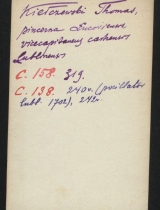 Kiełczewski Thomas,
pincerna
vicecapitaneus castrensis
Lublinensis
C. 158. 319.
C. 138. 240v. (pocillator
lubl. 1702), 242v.